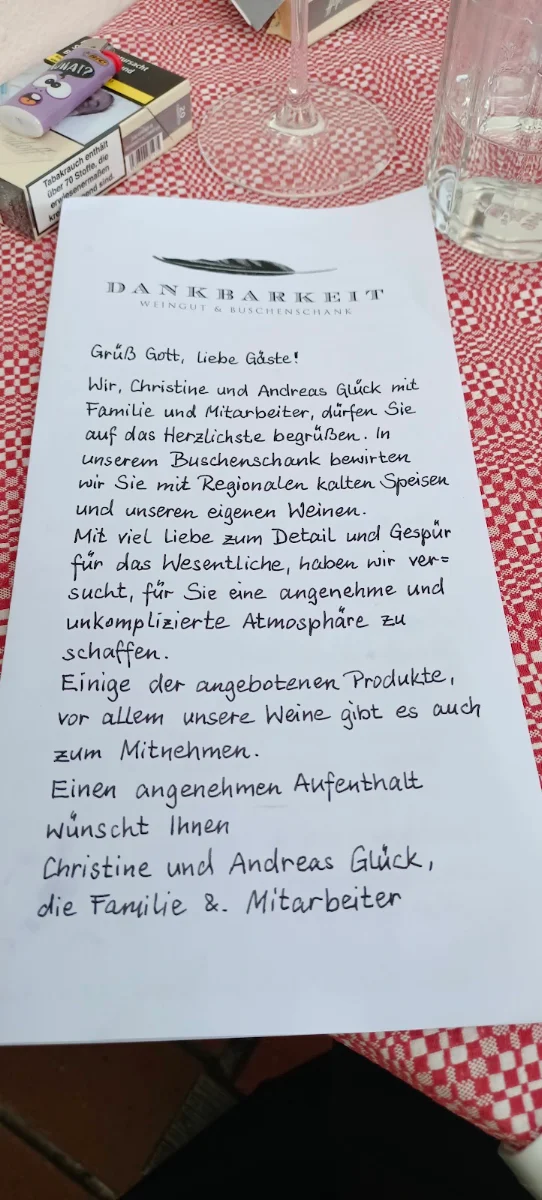 WHAT?
Tabakrauch enthält
über 70 Stoffe, die
erwiesenermaßen
sind.
DANKBARKEIT
WEINGUT & BUSCHENSCHANK
Grüß Gott, liebe Gäste!
Wir, Christine und Andreas Glück mit
Familie und Mitarbeiter, dürfen Sie
auf das Herzlichste begrüßen. In
unserem Buschenschank bewirten
wir Sie mit Regionalen kalten Speisen
und unseren eigenen Weinen.
Mit viel Liebe zum Detail und Gespür
für das Wesentliche, haben wir ver=
sucht, für Sie eine angenehme und
unkomplizierte Atmosphäre zu
schaffen.
Einige der angebotenen Produkte,
vor allem unsere Weine gibt es auch
zum Mitnehmen.
Einen angenehmen Aufenthalt
wünscht Ihnen
Christine und Andreas Glück,
die Familie &. Mitarbeiter